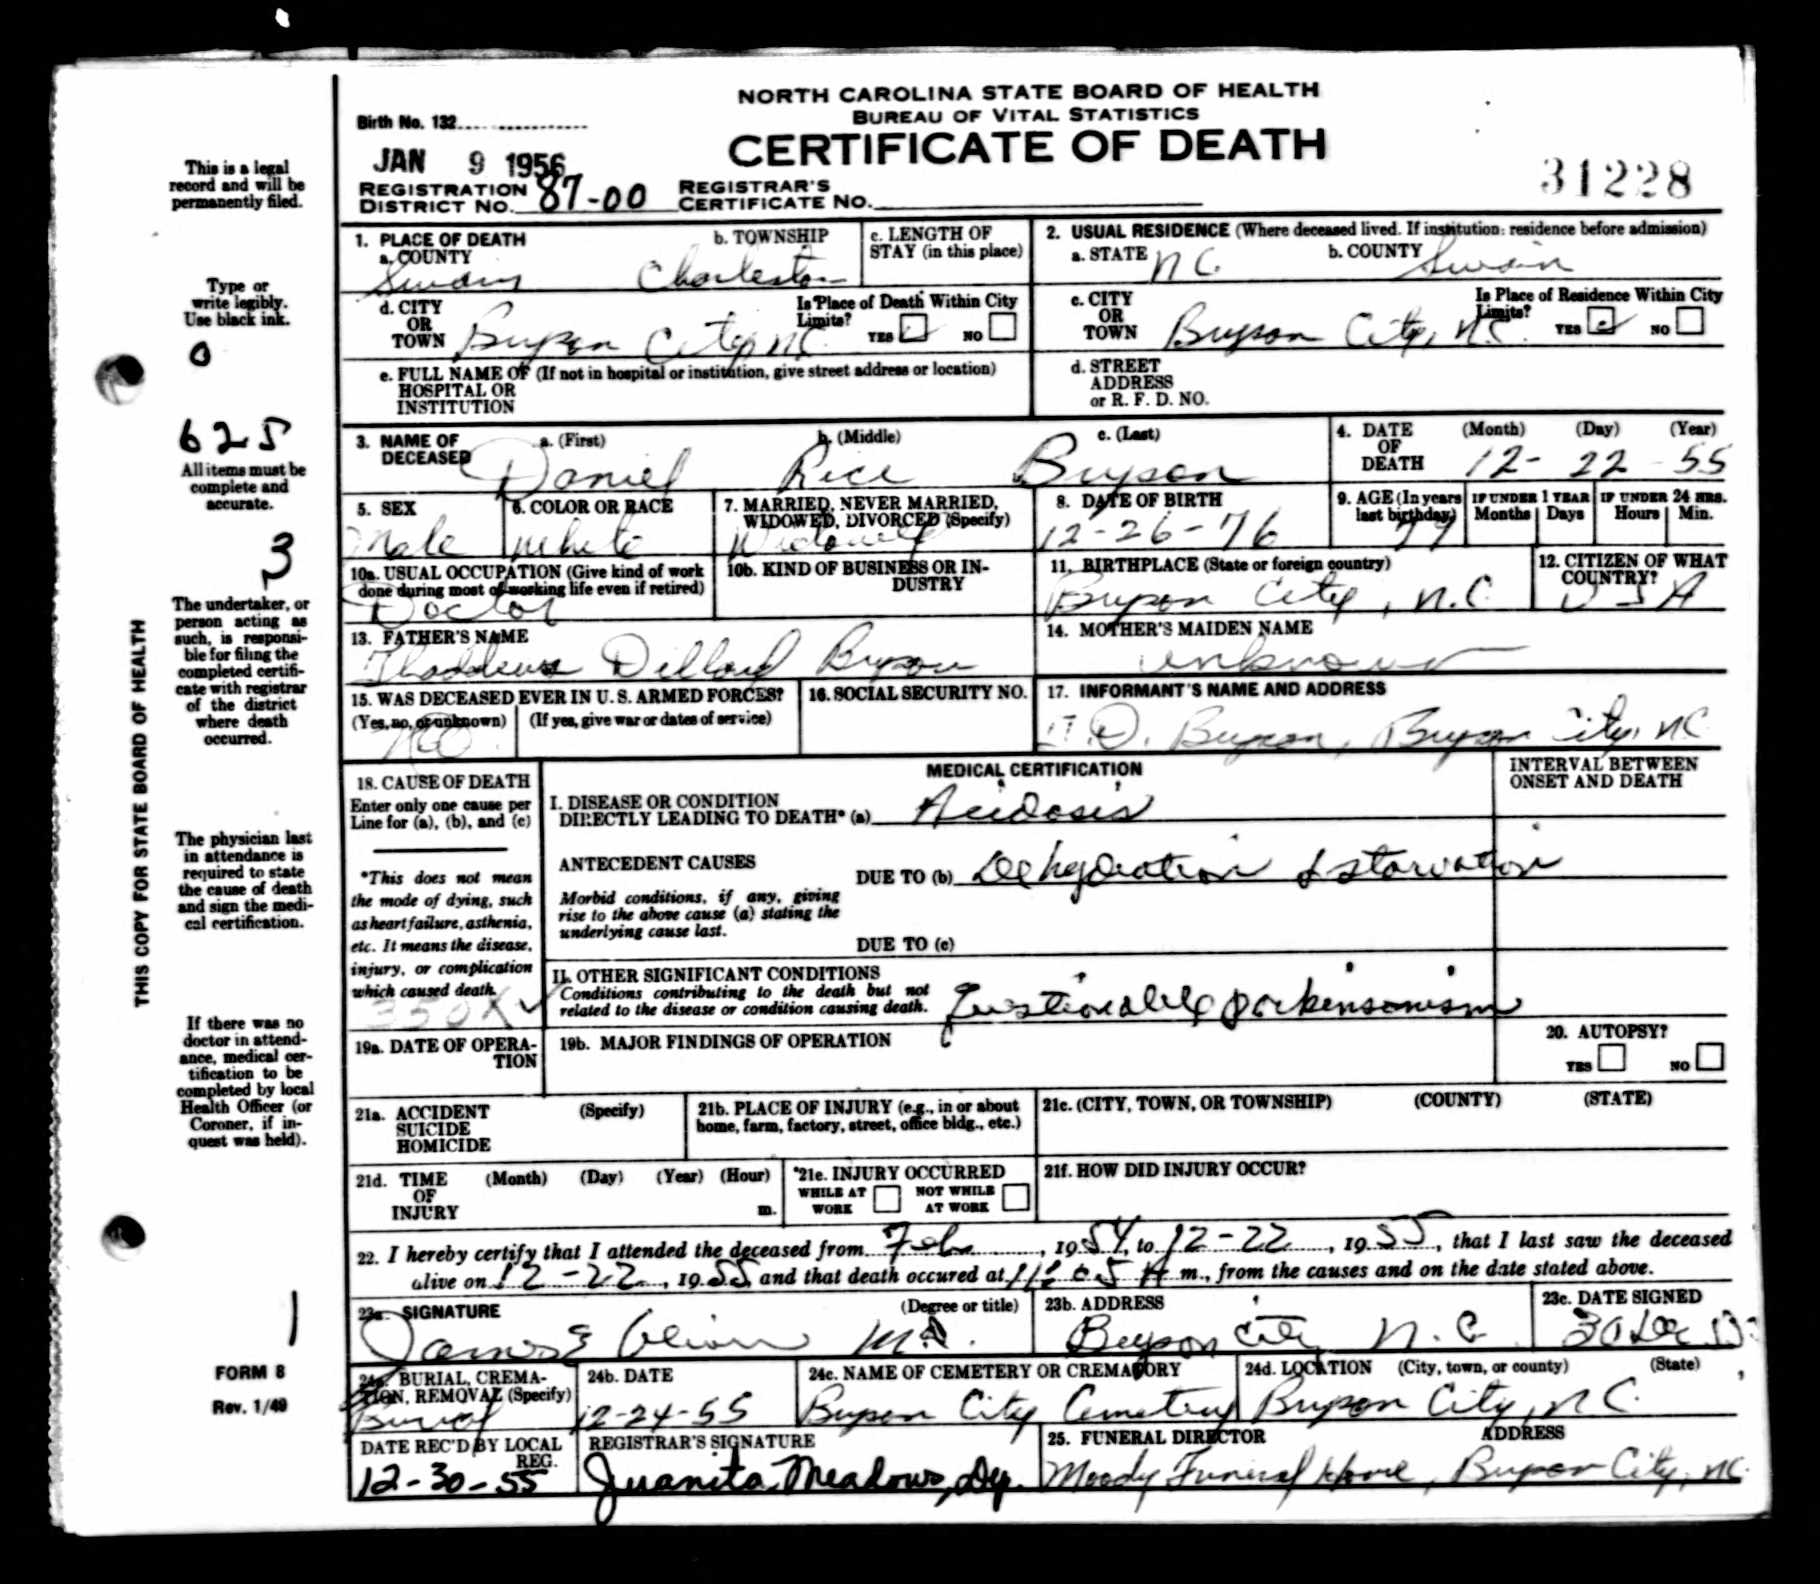 NORTH CAROLINA STATE BOARD OF HEALTH
BUREAU OF VITAL STATISTICS
CERTIFICATE OF DEATH
Birth No. 132
JAN 9 1956
31228
REGISTRATION DISTRICT NO. 87-00 REGISTRAR'S CERTIFICATE NO.
This is a legal record and will be permanently filed.
Type or write legibly. Use black ink.
0
625
All items must be complete and accurate.
3
The undertaker, or person acting as such, is responsible for filing the completed certificate with registrar of the district where death occurred.
The physician last in attendance is required to state the cause of death and sign the medical certification.
If there was no doctor in attendance, medical certification to be completed by local Health Officer (or Coroner, if inquest was held).
1
FORM 8
Rev. 1/49
THIS COPY FOR STATE BOARD OF HEALTH
1. PLACE OF DEATH
a. COUNTY Swain
b. TOWNSHIP Charleston
c. LENGTH OF STAY (in this place)
2. USUAL RESIDENCE (Where deceased lived. If institution: residence before admission)
a. STATE N C. b. COUNTY Swain
d. CITY OR TOWN Bryson City, N.C.
Is Place of Death Within City Limits? YES NO
c. CITY OR TOWN Bryson City, N.C.
Is Place of Residence Within City Limits? YES NO
e. FULL NAME OF HOSPITAL OR INSTITUTION (If not in hospital or institution, give street address or location)
d. STREET ADDRESS or R. F. D. NO.
3. NAME OF DECEASED a. (First) b. (Middle) c. (Last)
Daniel Rice Bryson
4. DATE OF DEATH (Month) (Day) (Year)
12- 22 -55
5. SEX Male
6. COLOR OR RACE White
7. MARRIED, NEVER MARRIED, WIDOWED, DIVORCED (Specify) Widowed
8. DATE OF BIRTH 12-26-76
9. AGE (In years last birthday) 77
IF UNDER 1 YEAR Months Days
IF UNDER 24 HRS. Hours Min.
10a. USUAL OCCUPATION (Give kind of work done during most of working life even if retired) Doctor
10b. KIND OF BUSINESS OR INDUSTRY
11. BIRTHPLACE (State or foreign country) Bryson City, N.C.
12. CITIZEN OF WHAT COUNTRY? USA
13. FATHER'S NAME Thaddeus Dillard Bryson
14. MOTHER'S MAIDEN NAME unknown
15. WAS DECEASED EVER IN U. S. ARMED FORCES?
(Yes, no, or unknown) (If yes, give war or dates of service)
No.
16. SOCIAL SECURITY NO.
17. INFORMANT'S NAME AND ADDRESS
T.D. Bryson, Bryson City, N.C.
18. CAUSE OF DEATH
Enter only one cause per Line for (a), (b), and (c)
*This does not mean the mode of dying, such as heart failure, asthenia, etc. It means the disease, injury, or complication which caused death.
350X
MEDICAL CERTIFICATION
INTERVAL BETWEEN ONSET AND DEATH
I. DISEASE OR CONDITION DIRECTLY LEADING TO DEATH* (a) Acidosis
ANTECEDENT CAUSES
Morbid conditions, if any, giving rise to the above cause (a) stating the underlying cause last.
DUE TO (b) Dehydration & starvation
DUE TO (c)
II. OTHER SIGNIFICANT CONDITIONS
Conditions contributing to the death but not related to the disease or condition causing death.
Questionable parkinsonism
19a. DATE OF OPERATION
19b. MAJOR FINDINGS OF OPERATION
20. AUTOPSY?
YES NO
21a. ACCIDENT SUICIDE HOMICIDE (Specify)
21b. PLACE OF INJURY (e.g., in or about home, farm, factory, street, office bldg., etc.)
21c. (CITY, TOWN, OR TOWNSHIP) (COUNTY) (STATE)
21d. TIME OF INJURY (Month) (Day) (Year) (Hour) m.
21e. INJURY OCCURRED
WHILE AT WORK NOT WHILE AT WORK
21f. HOW DID INJURY OCCUR?
22. I hereby certify that I attended the deceased from Feb, 1954, to 12-22, 1955, that I last saw the deceased
alive on 12-22, 1955 and that death occured at 11:05 A m., from the causes and on the date stated above.
23a. SIGNATURE (Degree or title)
James E M.D.
23b. ADDRESS Bryson City N. C.
23c. DATE SIGNED 30 Dec
24a. BURIAL, CREMATION, REMOVAL (Specify) Burial
24b. DATE 12-24-55
24c. NAME OF CEMETERY OR CREMATORY Bryson City Cemetery
24d. LOCATION (City, town, or county) (State) Bryson City, N.C.
DATE REC'D BY LOCAL REG. 12-30-55
REGISTRAR'S SIGNATURE Juanita Meadows, Dep.
25. FUNERAL DIRECTOR ADDRESS
Moody Funeral Home, Bryson City, NC.